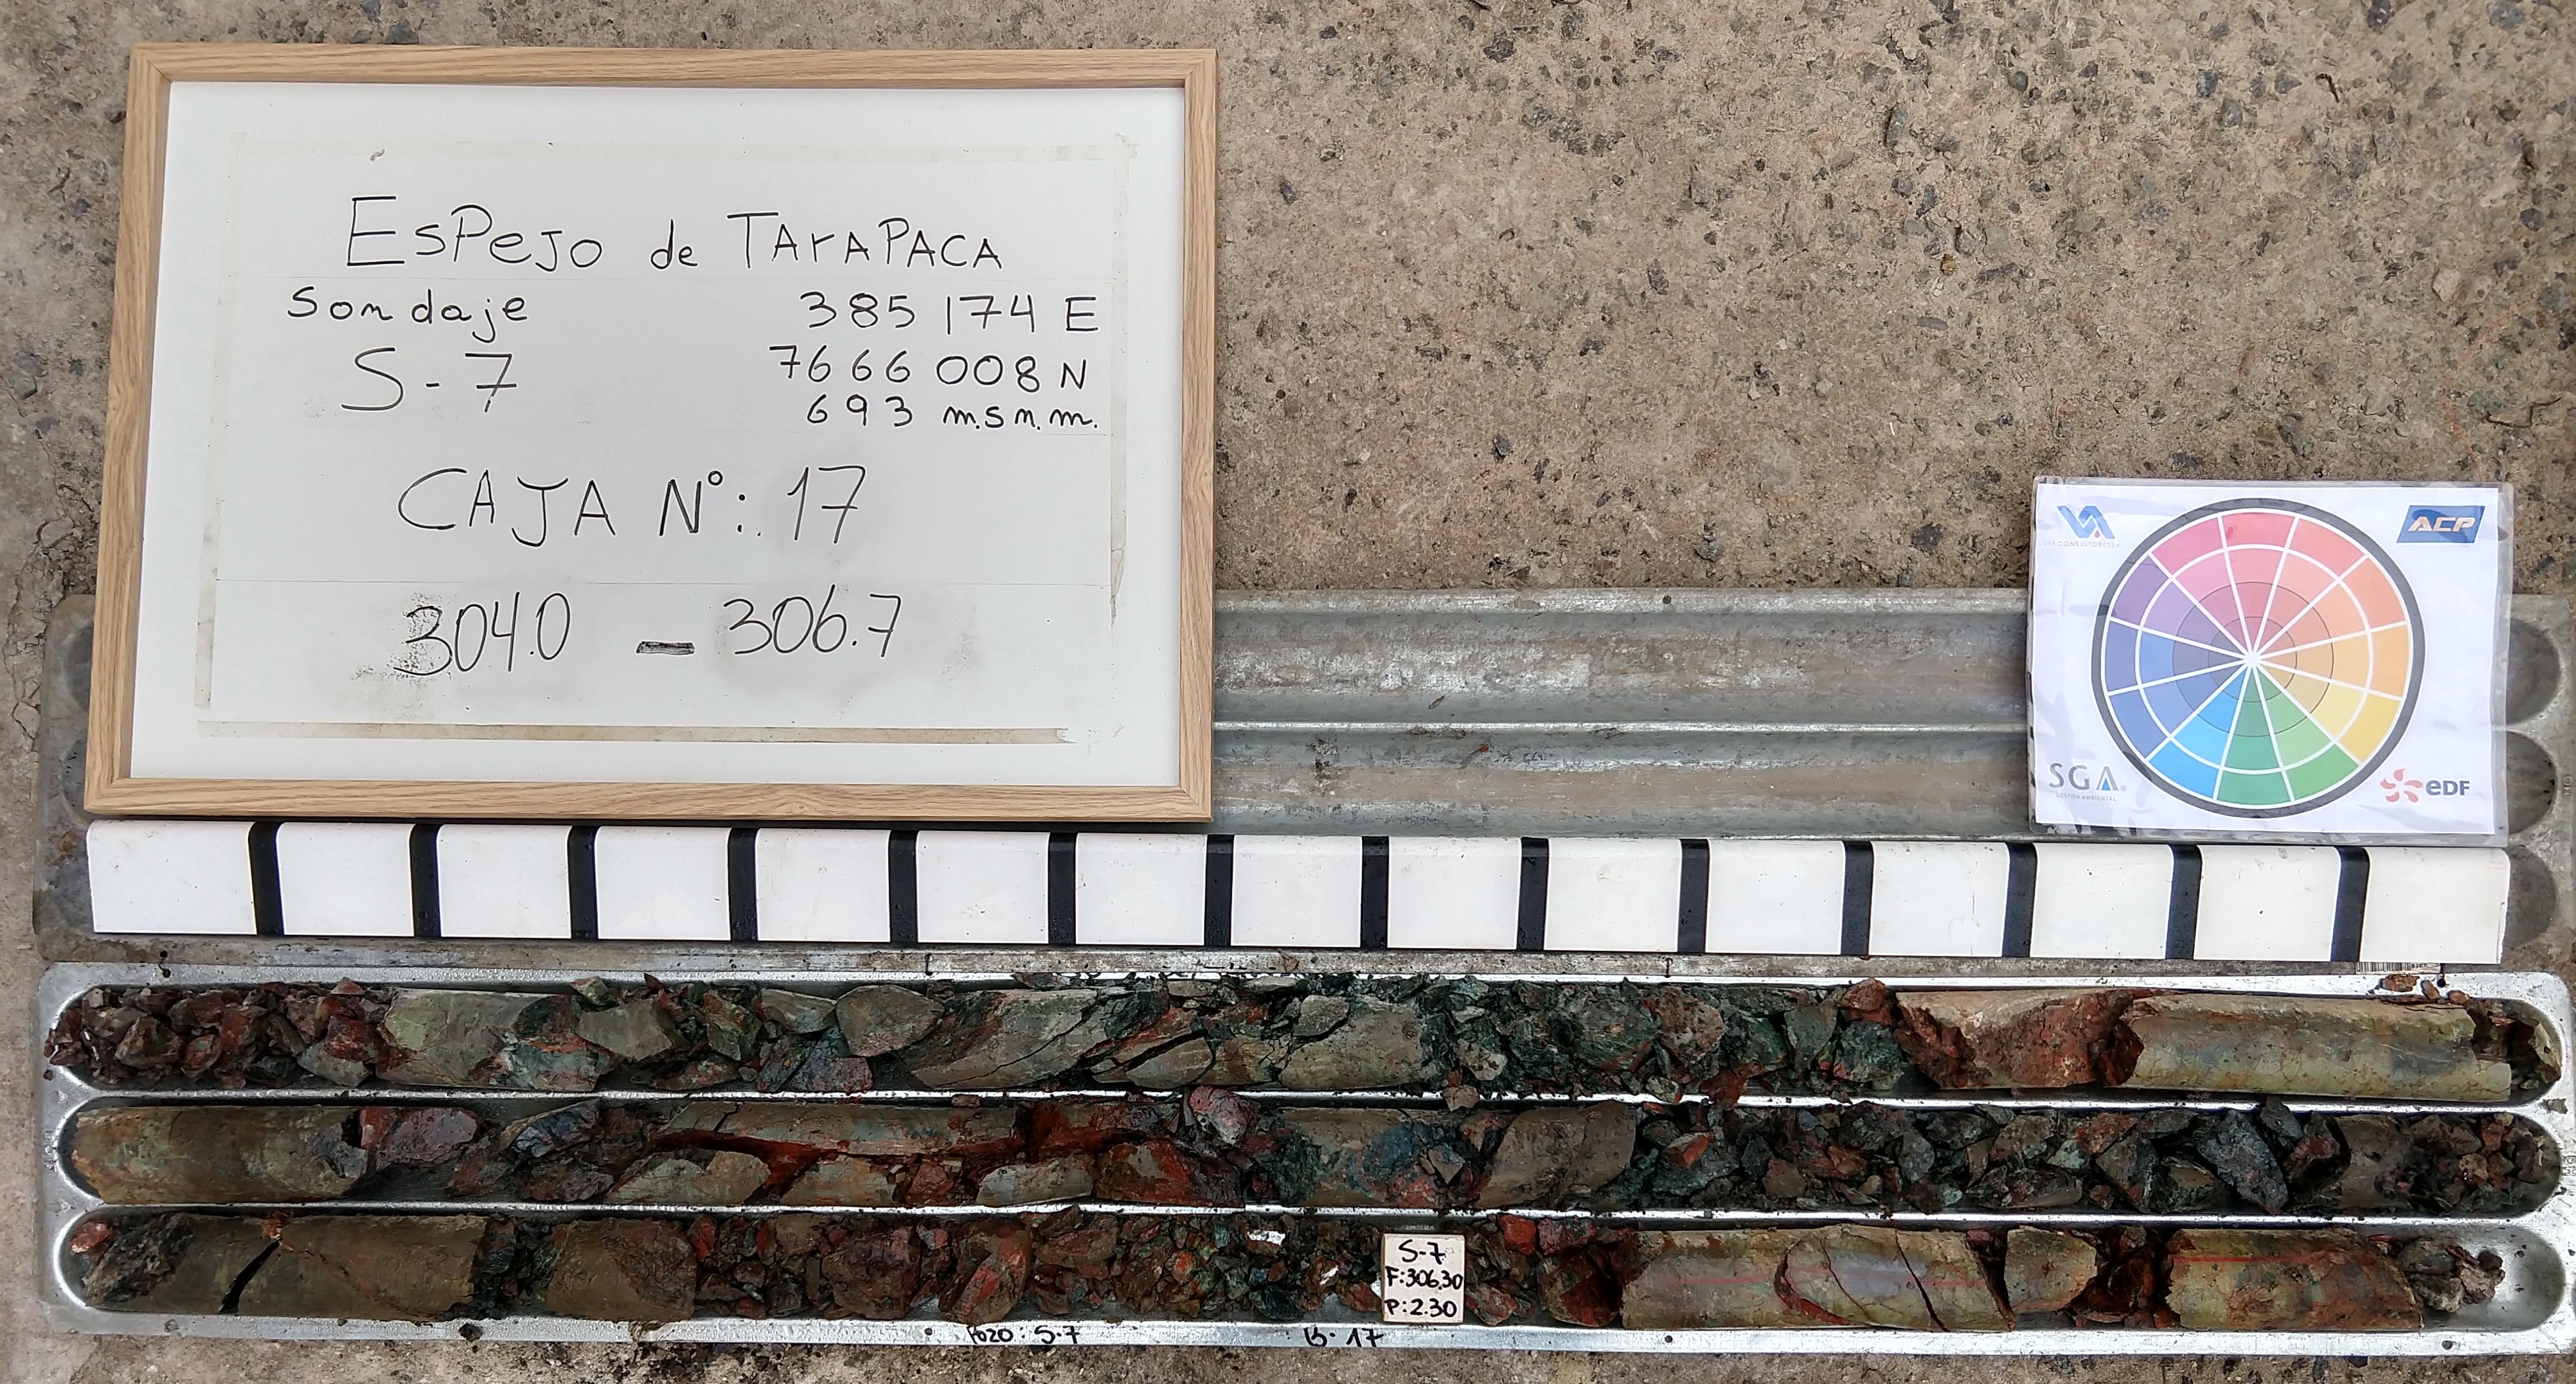 ESPEJO de TARAPACA
Sondaje 385 174 E
S-7 7666 008 N
693 m.s.n.m.
CAJA N°: 17
304.0 - 306.7
ACP
SGA
GESTIÓN AMBIENTAL
eDF
S-7
F:306.30
P:2.30
Pozo: S-7 B-17